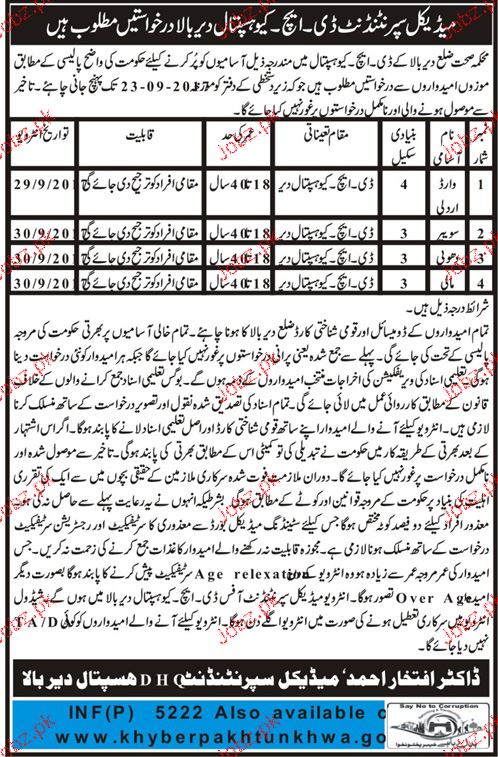 میڈیکل سپرنٹنڈنٹ ڈی۔ایچ۔کیو ہسپتال دیر بالا درخواستیں مطلوب ہیں
محکمہ صحت ضلع دیر بالا کے ڈی۔ایچ۔کیو ہسپتال میں مندرجہ ذیل آسامیوں کو پُر کرنے کیلئے حکومت کی واضح پالیسی کے مطابق
موزوں امیدواروں سے درخواستیں مطلوب ہیں جو کہ زیر دستخطی کے دفتر کو 23-09-2017 تک پہنچ جانی چاہئے۔ تاخیر
سے موصول ہونے والی اور نامکمل درخواستوں پر غور نہیں کیا جائے گا۔
نمبر شمار نام آسامی بنیادی سکیل مقام تعیناتی عمر کی حد قابلیت تواریخ انٹرویو
1 وارڈ اردلی 4 ڈی۔ایچ۔کیو ہسپتال دیر 18 تا 40 سال مقامی افراد کو ترجیح دی جائے گی 29/9/201
2 سویپر 3 ڈی۔ایچ۔کیو ہسپتال دیر 18 تا 40 سال مقامی افراد کو ترجیح دی جائے گی 30/9/201
3 دھوبی 3 ڈی۔ایچ۔کیو ہسپتال دیر 18 تا 40 سال مقامی افراد کو ترجیح دی جائے گی 30/9/201
4 مالی 3 ڈی۔ایچ۔کیو ہسپتال دیر 18 تا 40 سال مقامی افراد کو ترجیح دی جائے گی 30/9/201
شرائط درجہ ذیل ہیں۔
تمام امیدواروں کے ڈومیسائل اور قومی شناختی کارڈ ضلع دیر بالا کا ہونا چاہئے۔ تمام خالی آسامیوں پر بھرتی حکومت کی مروجہ
پالیسی کے تحت کی جائے گی۔ پہلے سے جمع شدہ یعنی پرانی درخواستوں پر غور نہیں کیا جائے گا جبکہ ہر امیدوار کو نئی درخواست دینا
ہوگی۔ تعلیمی اسناد کی ویریفکیشن کی اخراجات منتخب امیدواروں کے ذمہ ہوں گے۔ بوگس تعلیمی اسناد جمع کرانے والوں کے خلاف
قانون کے مطابق کارروائی عمل میں لائی جائے گی۔ تمام اسناد کی تصدیق شدہ نقول اور تصویر درخواست کے ساتھ منسلک کرنا
لازمی ہیں۔ انٹرویو کیلئے آنے والے امیدوار اپنے ساتھ قومی شناختی کارڈ اور اصل تعلیمی اسناد لانے کا پابند ہوگا۔ اگر اس اشتہار
کے بعد بھرتی کے طریقہ کار میں حکومت نے تبدیلی کی تو کمیٹی اس کے مطابق بھرتی کی پابند ہوگی۔ تاخیر سے موصول شدہ اور
نامکمل درخواست پر غور نہیں کیا جائے گا۔ دوران ملازمت فوت شدہ سرکاری ملازمین کے حقیقی بچوں میں سے ایک کی تقرری
اہلیت کی بنیاد پر حکومت کے مروجہ قوانین اور کوٹے کے مطابق ہوگی بشرطیکہ انہوں نے یہ رعایت پہلے سے حاصل نہ کی ہو۔
معذور افراد کیلئے دو فیصد کوٹہ مختص ہوگا جس کیلئے سٹینڈنگ میڈیکل بورڈ سے معذوری کا سرٹیفکیٹ اور رجسٹریشن سرٹیفکیٹ
درخواست کے ساتھ منسلک ہونا لازمی ہے۔ مجوزہ قابلیت نہ رکھنے والے امیدوار کاغذات جمع کرنے کی زحمت نہ کریں۔ جس
امیدوار کی عمر مروجہ عمر سے زیادہ ہو وہ انٹرویو کے Age relexation سرٹیفکیٹ پیش کرنے کا پابند ہوگا بصورت دیگر
امیدوار Over Age تصور ہوگا۔ انٹرویو میڈیکل سپرنٹنڈنٹ آفس ڈی۔ایچ۔کیو ہسپتال دیر بالا میں ہوں گے۔ شیڈول
انٹرویو میں سرکاری تعطیل ہونے کی صورت میں انٹرویو اگلے دن ہوگا۔ انٹرویو کیلئے آنے والے امیدواروں کو کوئی TA/DA
نہیں دیا جائے گا۔
ڈاکٹر افتخار احمد، میڈیکل سپرنٹنڈنٹ DHQ ہسپتال دیر بالا
INF(P) 5222 Also available o
www.khyberpakhtunkhwa.go
Say No to Corruption
jobz.pk